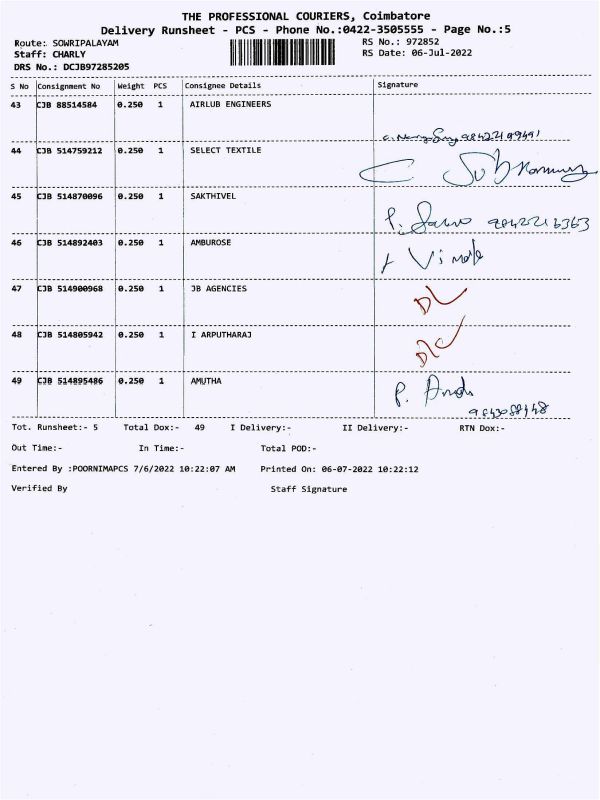 THE PROFESSIONAL COURIERS, Coimbatore
Delivery Runsheet - PCS - Phone No.:0422-3505555 - Page No.:5
Route: SOWRIPALAYAM RS No.: 972852
Staff: CHARLY RS Date: 06-Jul-2022
DRS No.: DCJB97285205
S No Consignment No Weight PCS Consignee Details Signature
43 CJB 88514584 0.250 1 AIRLUB ENGINEERS
44 CJB 514759212 0.250 1 SELECT TEXTILE
45 CJB 514870096 0.250 1 SAKTHIVEL
P.
46 CJB 514892403 0.250 1 AMBUROSE
47 CJB 514900968 0.250 1 JB AGENCIES
DL
48 CJB 514805942 0.250 1 I ARPUTHARAJ
49 CJB 514895486 0.250 1 AMUTHA
P.
Tot. Runsheet:- 5 Total Dox:- 49 I Delivery:- II Delivery:- RTN Dox:-
Out Time:- In Time:- Total POD:-
Entered By :POORNIMAPCS 7/6/2022 10:22:07 AM Printed On: 06-07-2022 10:22:12
Verified By Staff Signature